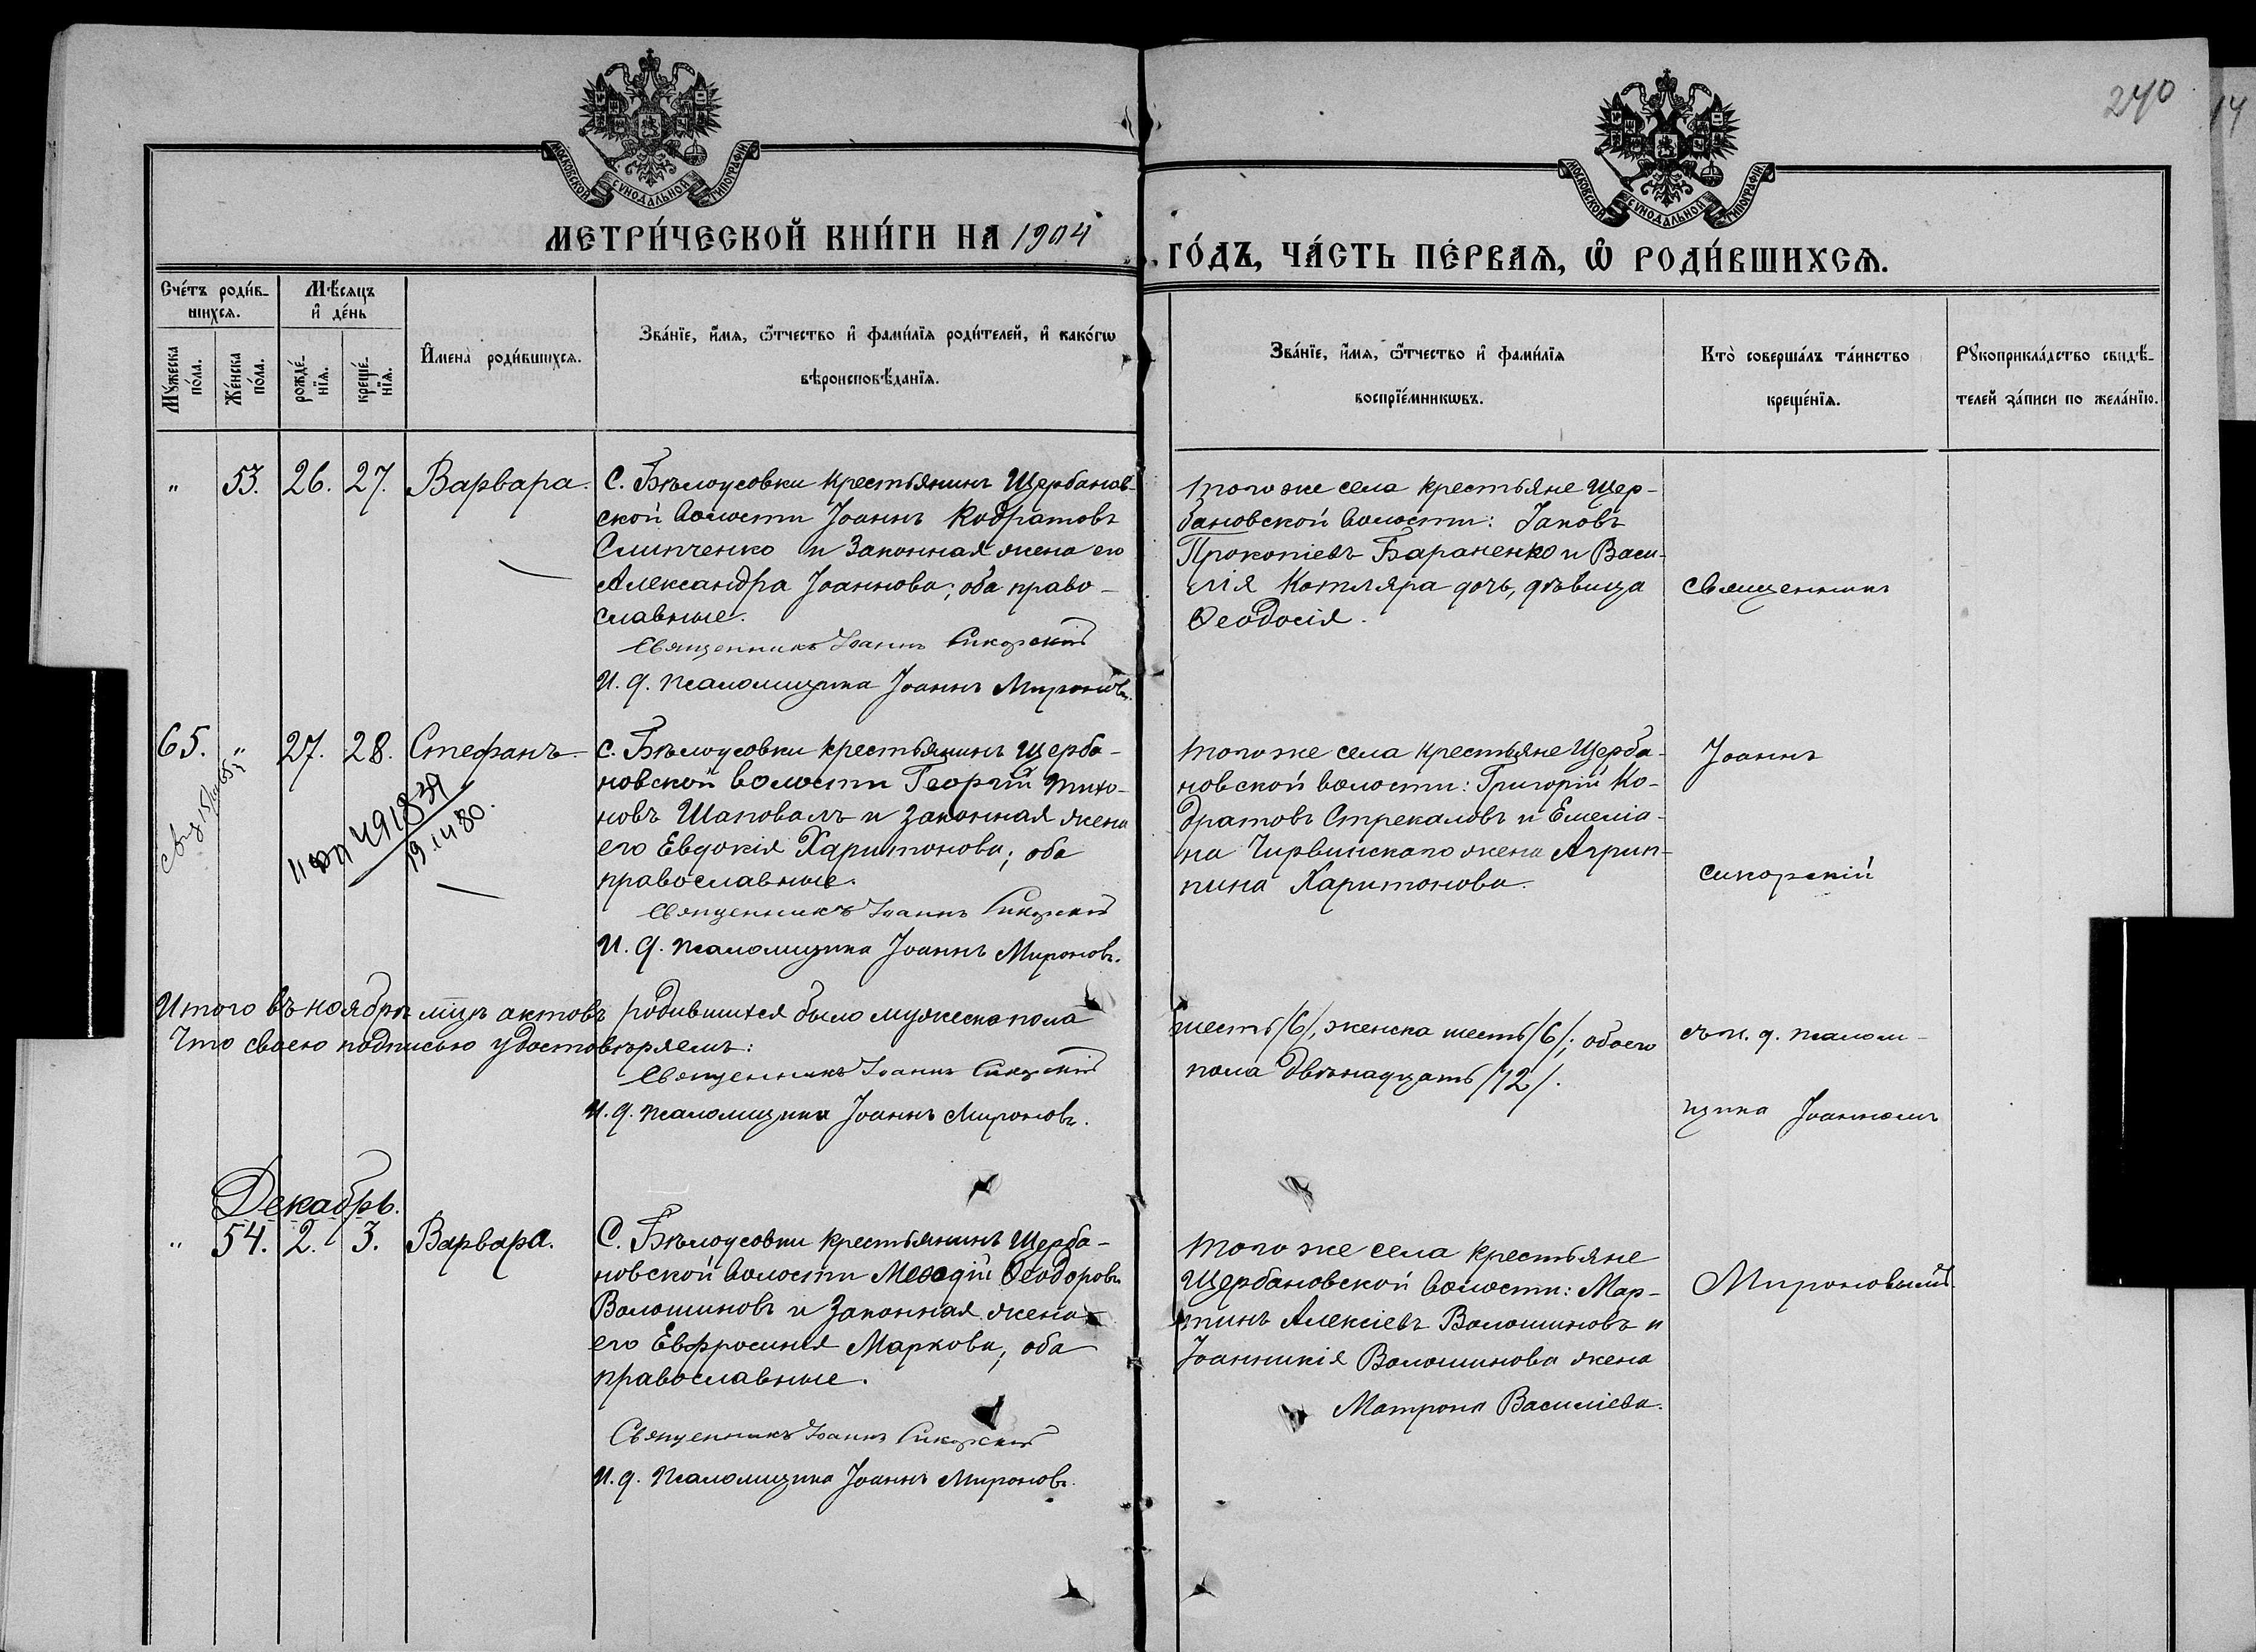 240
14
МОСКОВСКОЙ СѴНОДАЛЬНОЙ ТИПОГРАФІИ
МОСКОВСКОЙ СѴНОДАЛЬНОЙ ТИПОГРАФІИ
МЕТРИ́ЧЕСКОЙ КНИ́ГИ НА 1904
ГО́ДЪ, ЧА́СТЬ ПЕ́РВАЯ, Ѡ҆ РОДИ́ВШИХСЯ.
Сче́тъ роди́в-
шихся.
Мꙋ́жеска по́ла.
Же́нска по́ла.
Мѣ́сяцъ
и҆ де́нь
рожде́-нїя.
креще́-нїя.
И҆мена̀ роди́вшихся.
Зва́нїе, и҆́мя, ѻ҆́тчество и҆ фами́лїя роди́телей, и҆ како́гѡ
вѣроисповѣ́данїя.
Зва́нїе, и҆́мя, ѻ҆́тчество и҆ фами́лїя
воспрїе́мникѡвъ.
Кто̀ соверша́лъ та́инство
креще́нїя.
Рꙋкоприкла́дство свидѣ́-
телей за́писи по жела́нїю.
" 53. 26. 27. Варвара.
С. Бѣлоусовки крестьянинъ Щербанов-
ской волости Іоаннъ Кодратовъ
Слипченко и законная жена его
Александра Іоаннова; оба право-
славные.
Священникъ Іоаннъ Сикорскій
И. д. псаломщика Іоаннъ Мироновъ.
того же села крестьяне Щер-
бановской волости: Іаковъ
Прокопіевъ Бараненко и Васи-
лія Котляра дочь, дѣвица
Ѳеодосія.
священникъ
65. " 27. 28. Стефанъ.
491839
19.11.80.
С. Бѣлоусовки крестьянинъ Щерба-
новской волости Георгій Тихо-
новъ Шаповалъ и законная жена
его Евдокія Харитонова; оба
православные.
Священникъ Іоаннъ Сикорскій
И. д. псаломщика Іоаннъ Мироновъ.
того же села крестьяне Щерба-
новской волости: Григорій Ко-
дратовъ Стрекаловъ и Емеліа-
на Чирвинскаго жена Агрип-
пина Харитонова.
Іоаннъ
Сикорскій
Итого въ ноябрѣ мцѣ актовъ родившихся было мужеска пола
шесть /6/, женска шесть /6/; обоего
Что своею подписью удостовѣряемъ:
пола двѣнадцать /12/.
Священникъ Іоаннъ Сикорскій
И. д. псаломщика Іоаннъ Мироновъ.
съ и. д. псалом-
щика Іоанномъ
Декабрь.
" 54. 2. 3. Варвара.
С. Бѣлоусовки крестьянинъ Щерба-
новской волости Меѳодій Ѳеодоровъ
Волошиновъ и законная жена
его Евфросинія Маркова; оба
православные.
Священникъ Іоаннъ Сикорскій
И. д. псаломщика Іоаннъ Мироновъ.
того же села крестьяне
Щербановской волости: Мар-
тинъ Алексіевъ Волошиновъ и
Іоанникія Волошинова жена
Матрона Василіева.
Мироновымъ.